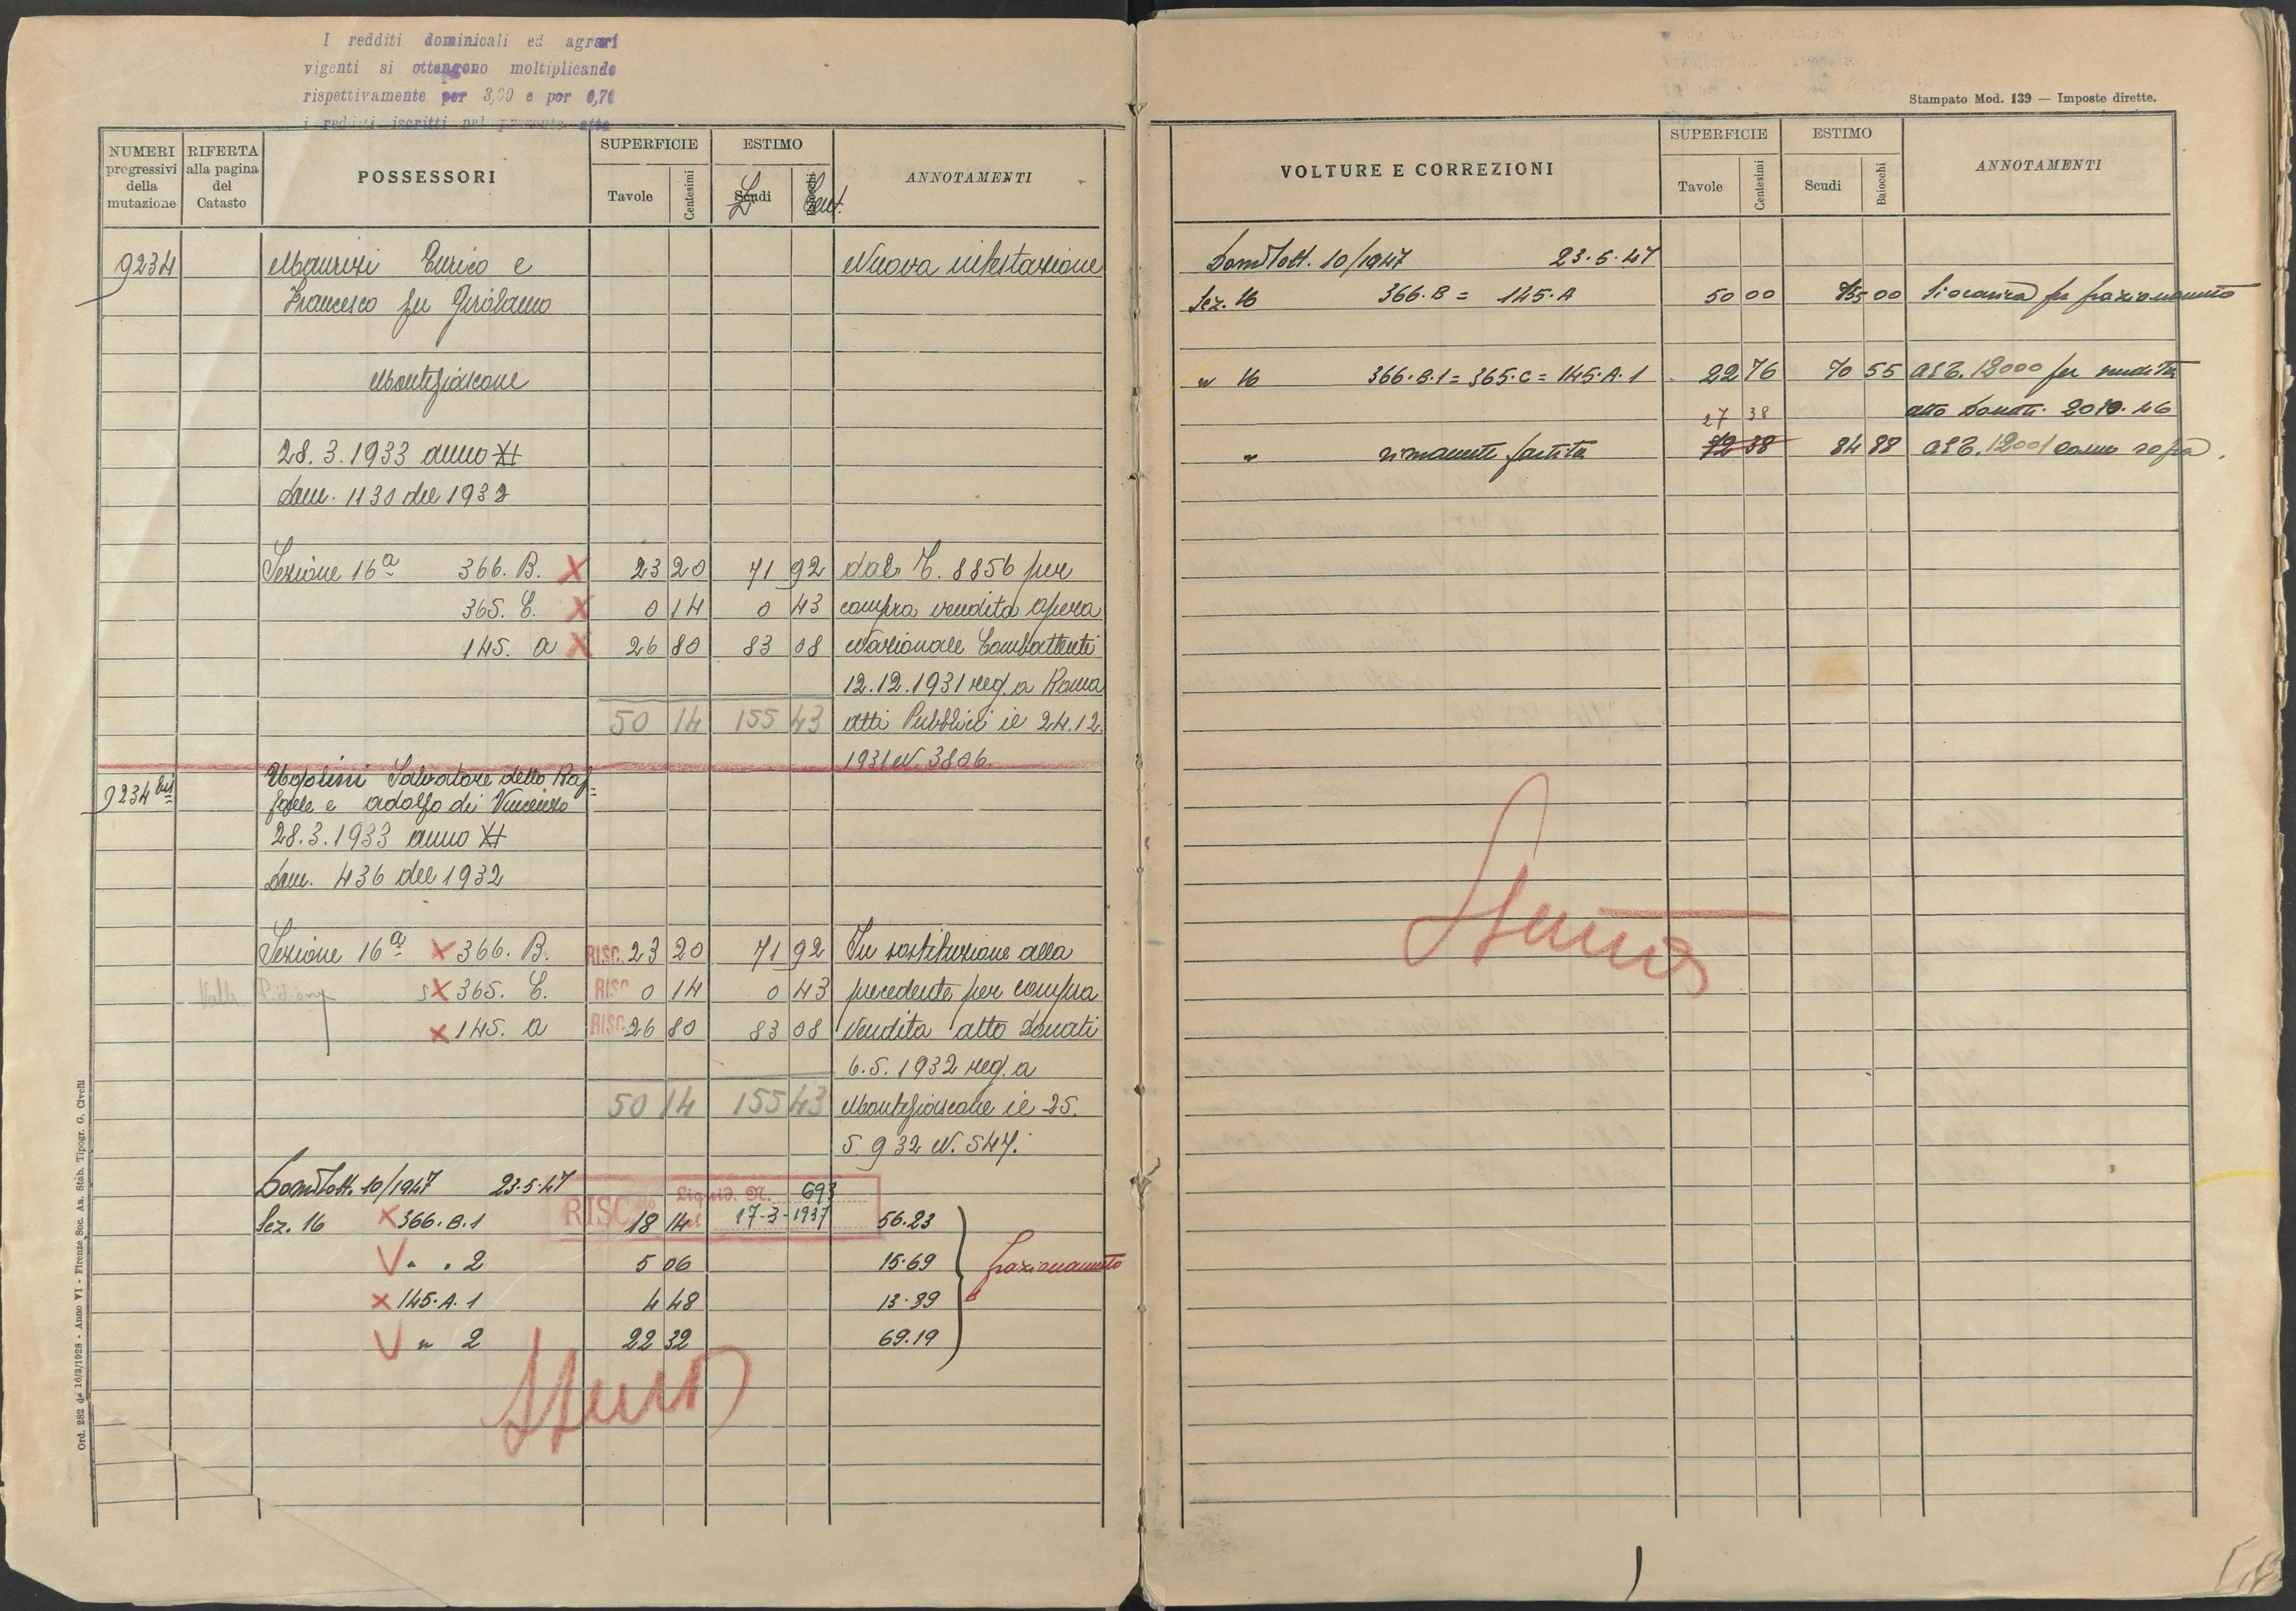 I redditi dominicali ed agrari
vigenti si ottengono moltiplicando
rispettivamente per 3,00 e per 0,70
i redditi iscritti nel presente atto
NUMERI progressivi della mutazione
RIFERTA alla pagina del Catasto
POSSESSORI
SUPERFICIE
Tavole
Centesimi
ESTIMO
Scudi
Baiocchi
L
Cent.
ANNOTAMENTI
9234 Maurizi Enrico e Nuova intestazione
Francesco fu Girolamo
Montefiascone
28.3.1933 anno XI
Dom. 1130 del 1932
Sezione 16a 366. B. X 23 20 71 92 dal C. 8856 per
365. C. X 0 14 0 43 compra vendita opera
145. a X 26 80 83 08 Nazionale Combattenti
12.12.1931 reg. a Roma
50 14 155 43 atti Pubblici il 24.12.
1931 N. 3806
9234 bis Ugolini Salvatore detto Raf=
faele e Adolfo di Vincenzo
28.3.1933 anno XI
Dom. 436 del 1932
Sezione 16a X 366. B. RISC. 23 20 71 92 In sostituzione alla
Valle X 365. C. RISC 0 14 0 43 precedente per compra
X 145. a RISC. 26 80 83 08 Vendita atto Donati
6.5.1932 reg. a
50 14 155 43 Montefiascone il 25.
5 932 N. 547.
10/1947 23-5-47
RISC. Liquid. N. 693
17-3-1937
Sez. 16 X 366.B.1 18 14 56.23
V " . 2 5 06 15.69
X 145.A.1 4 48 13.89
V " 2 22 32 69.19
frazionamento
Ord. 282 de 16/3/1928 - Anno VI - Firenze Soc. An. Stab. Tipogr. G. Civelli
Stampato Mod. 139 — Imposte dirette.
VOLTURE E CORREZIONI
SUPERFICIE
Tavole
Centesimi
ESTIMO
Scudi
Baiocchi
ANNOTAMENTI
10/1947 23.5.47
Sez. 16 366.B = 145.A 50 00 155 00 Si scarica per frazionamento
" 16 366.B.1 = 365.C = 145.A.1 22 76 70 55 al C. 12000 per vendita
27 38 atto Donati. 20.10.46
" rimanente partita 72 38 84 88 al C. 12001 come sopra.